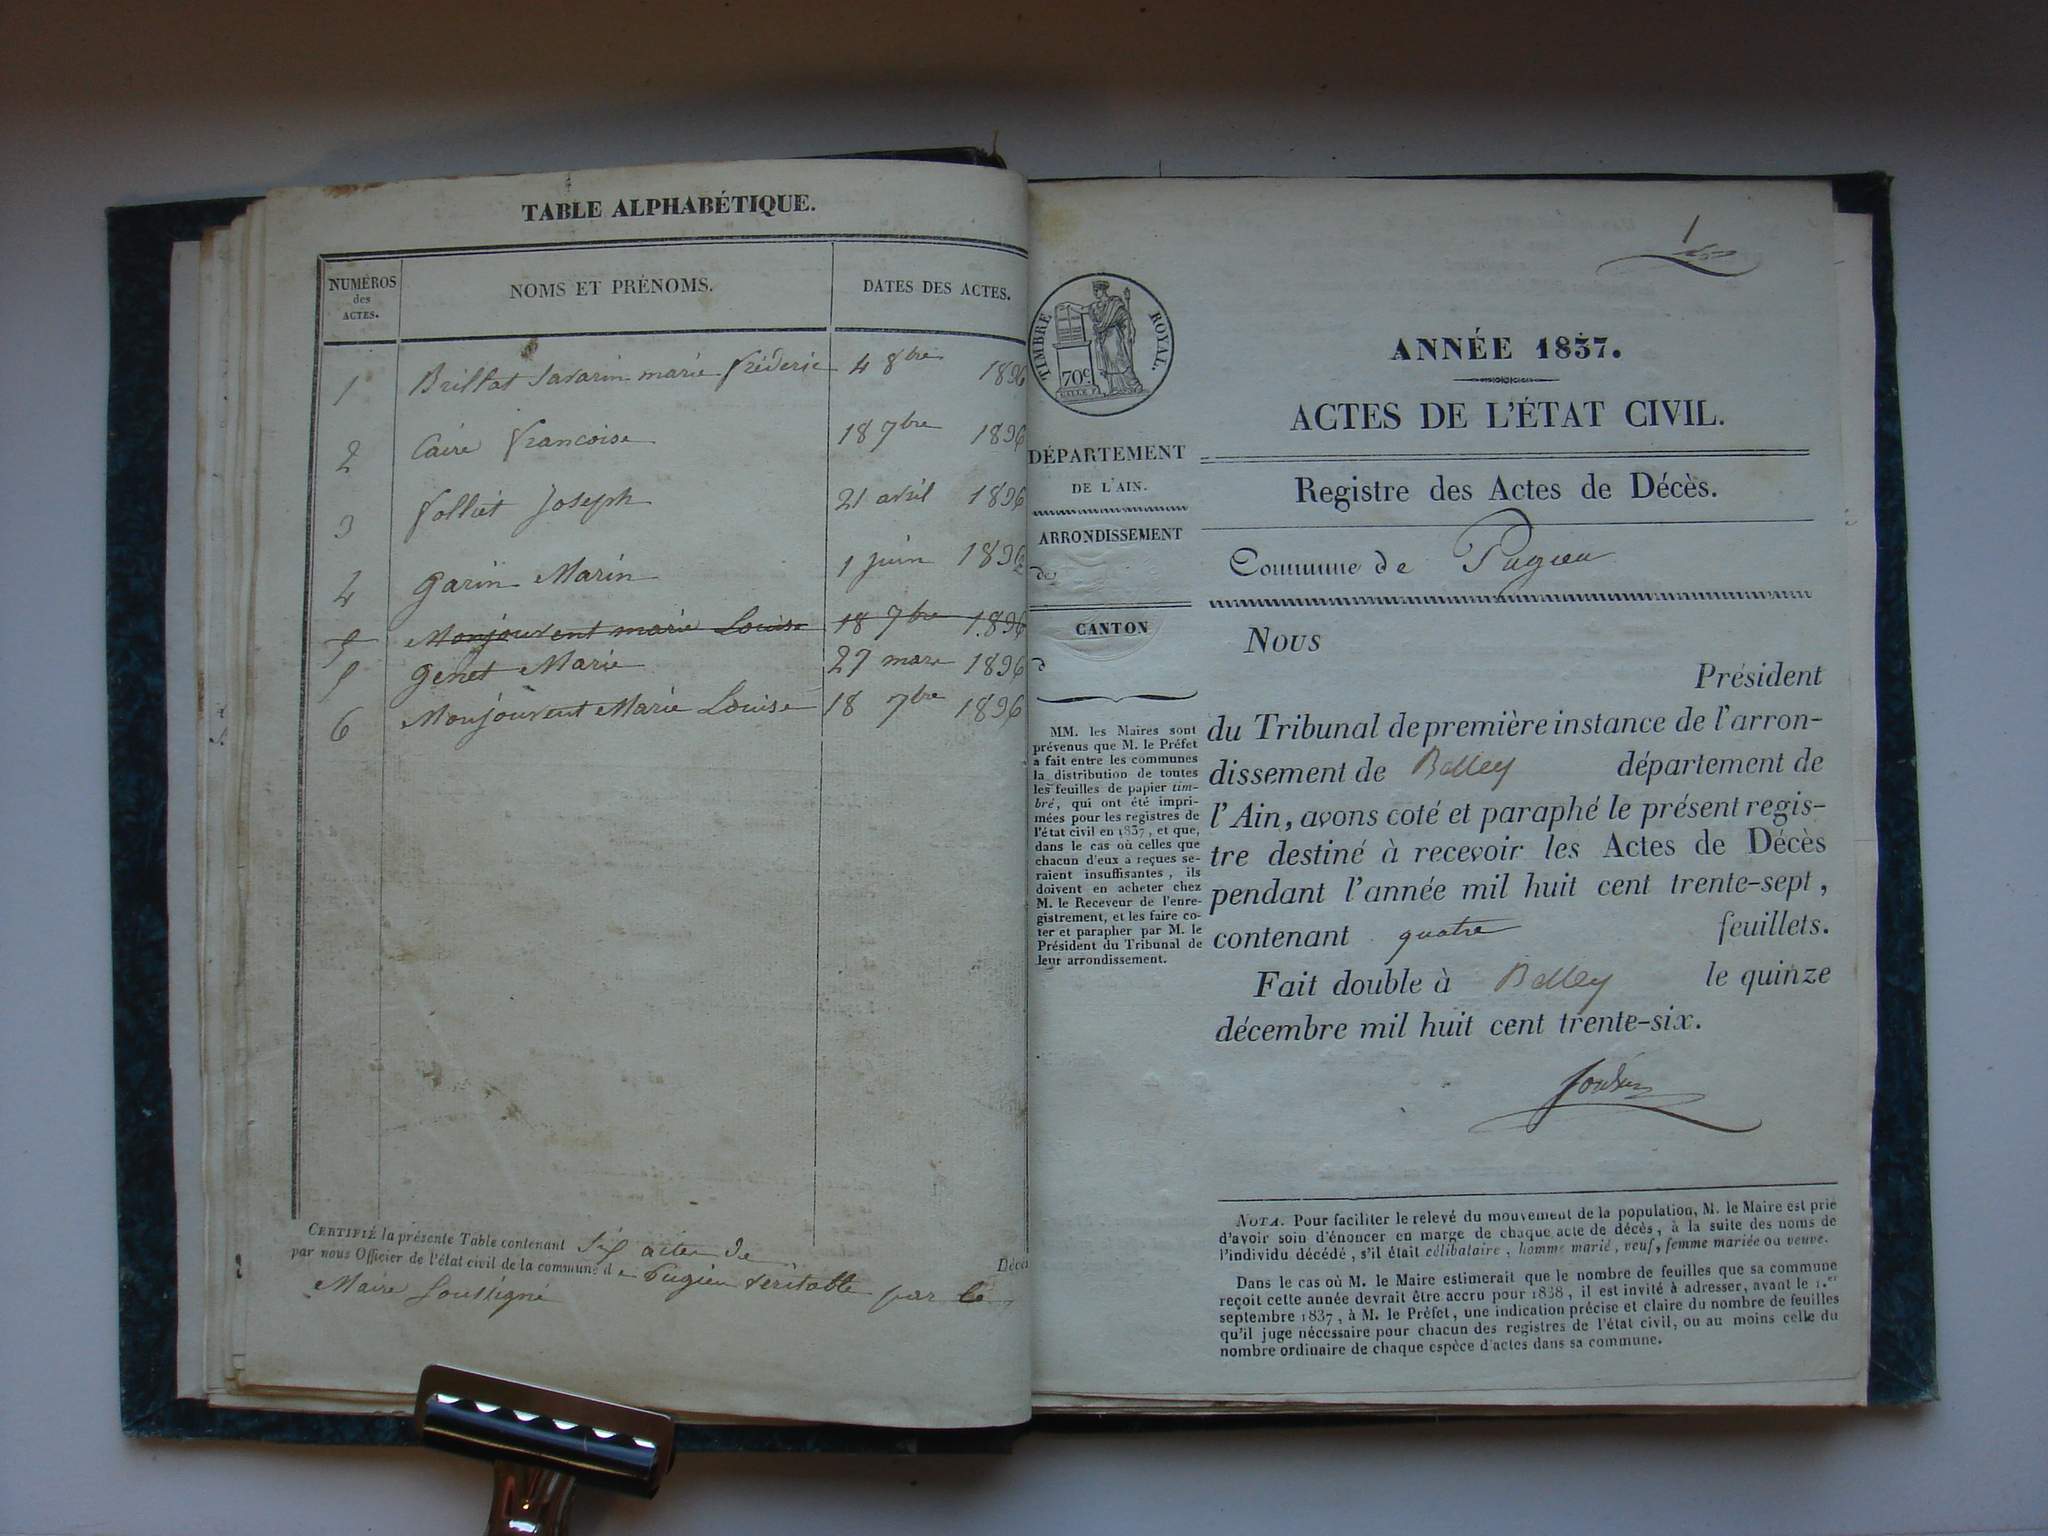 TABLE ALPHABÉTIQUE.
NUMÉROS
des
ACTES.
NOMS ET PRÉNOMS.
DATES DES ACTES.
1 Brillat Savarin marie fréderic 4 8bre 1836
2 Caire francoise 18 7bre 1836
3 folliet Joseph 21 avril 1836
4 garin Marin 1 juin 1836
5 Monjouvent marie Louise 18 7bre 1836
5 genet Marie 27 mars 1836
6 Monjouvent Marie Louise 18 7bre 1836
CERTIFIÉ la présente Table contenant six actes de Décès
par nous Officier de l'état civil de la commune de Pugieu veritable par le
Maire soussigné
1
TIMBRE ROYAL.
70c.
ANNÉE 1837.
ACTES DE L'ÉTAT CIVIL.
Registre des Actes de Décès.
Commune de Pugieu
DÉPARTEMENT
DE L'AIN.
ARRONDISSEMENT
de
CANTON
d
MM. les Maires sont
prévenus que M. le Préfet
a fait entre les communes
la distribution de toutes
les feuilles de papier tim-
bré, qui ont été impri-
mées pour les registres de
l'état civil en 1837, et que,
dans le cas où celles que
chacun d'eux a reçues se-
raient insuffisantes, ils
doivent en acheter chez
M. le Receveur de l'enre-
gistrement, et les faire co-
ter et parapher par M. le
Président du Tribunal de
leur arrondissement.
Nous
Président
du Tribunal de première instance de l'arron-
dissement de Belley département de
l'Ain, avons coté et paraphé le présent regis-
tre destiné à recevoir les Actes de Décès
pendant l'année mil huit cent trente-sept,
contenant quatre feuillets.
Fait double à Belley le quinze
décembre mil huit cent trente-six.
NOTA. Pour faciliter le relevé du mouvement de la population, M. le Maire est prié
d'avoir soin d'énoncer en marge de chaque acte de décès, à la suite des noms de
l'individu décédé, s'il était célibataire, homme marié, veuf, femme mariée ou veuve.
Dans le cas où M. le Maire estimerait que le nombre de feuilles que sa commune
reçoit cette année devrait être accru pour 1838, il est invité à adresser, avant le 1.er
septembre 1837, à M. le Préfet, une indication précise et claire du nombre de feuilles
qu'il juge nécessaire pour chacun des registres de l'état civil, ou au moins celle du
nombre ordinaire de chaque espèce d'actes dans sa commune.